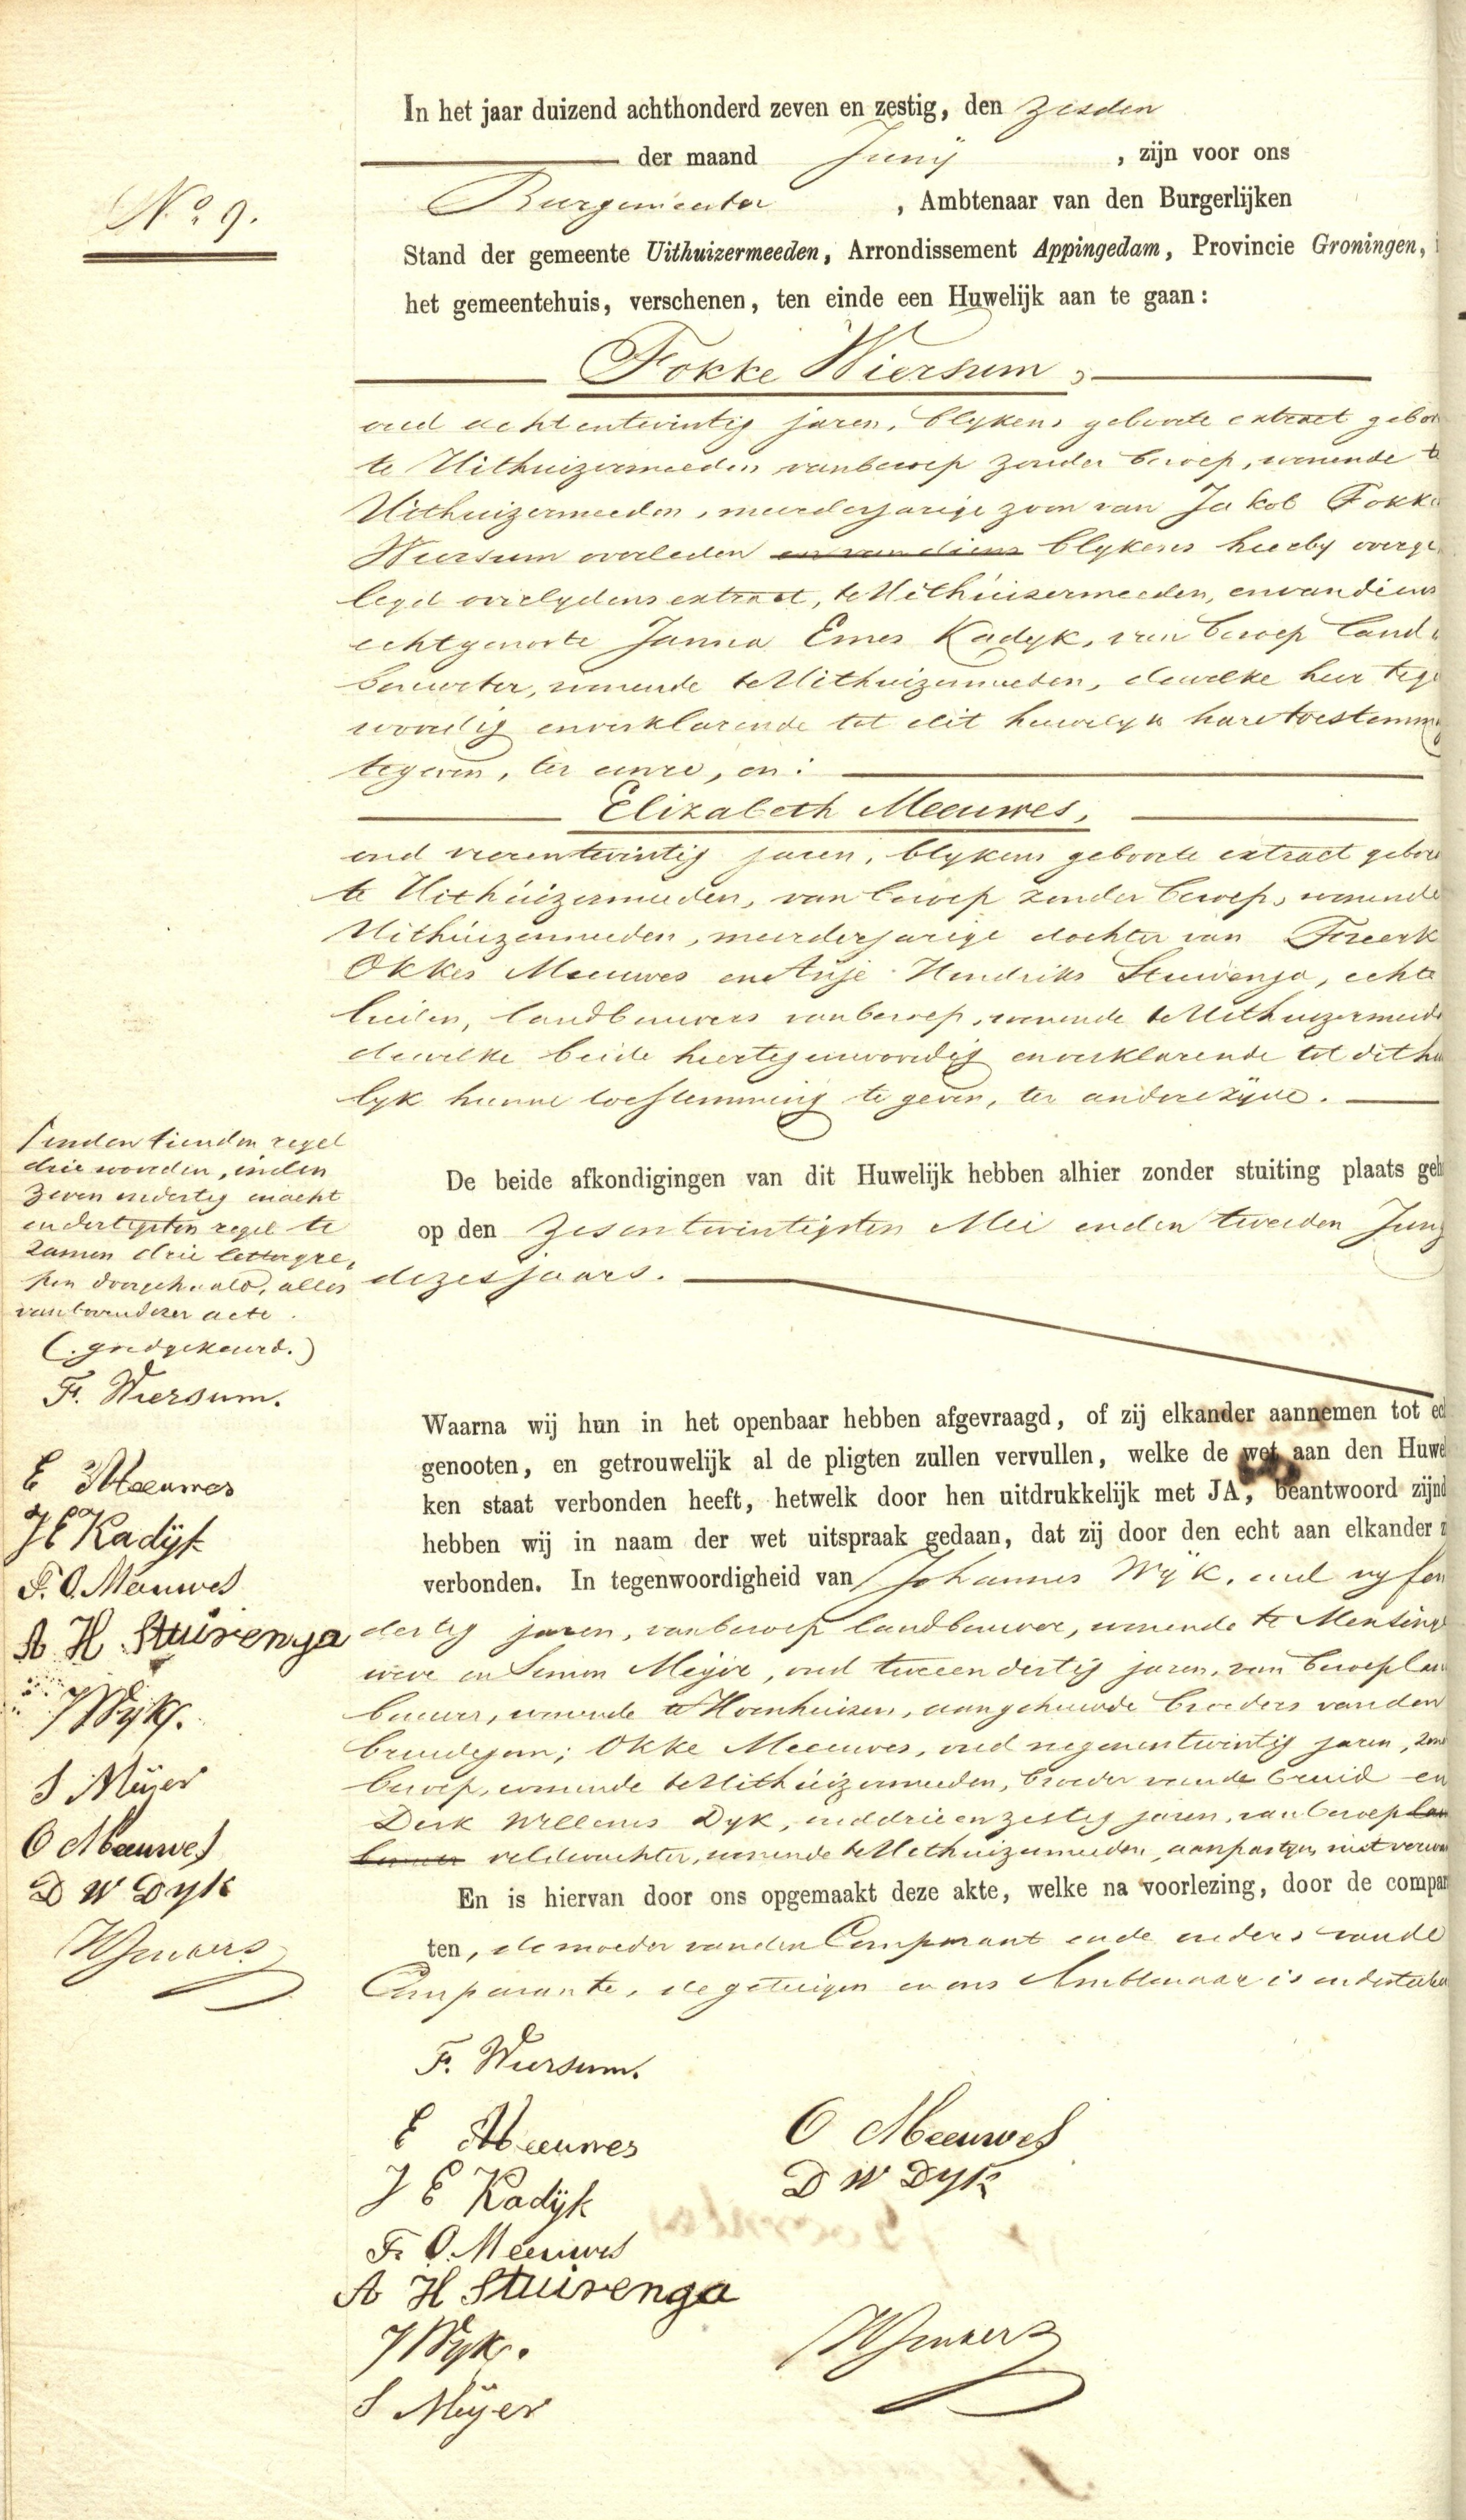 No. 9.
In het jaar duizend achthonderd zeven en zestig, den zesden
der maand Junij, zijn voor ons
Burgemeester, Ambtenaar van den Burgerlijken
Stand der gemeente Uithuizermeeden, Arrondissement Appingedam, Provincie Groningen,
het gemeentehuis, verschenen, ten einde een Huwelijk aan te gaan:
Fokke Wiersum,
oud achtentwintig jaren, blykens geboorte extract gebor
te Uithuizermeeden van beroep zonder beroep, wonende t
Uithuizermeeden, meerderjarige zoon van Jakob Fokke
Wiersum overleden en van diens blykens hierby overge
legd overlydens extract, te Uithuizermeeden, en van diens
echtgenoote Janna Emes Kadyk, van beroep land
bouwster, wonende te Uithuizermeeden, dewelke hier tege
woordig en verklarende tot dit huwelyk hare toestemm
te geven, ter eenre, en:
Elizabeth Meeuwes,
oud vierentwintig jaren, blykens geboorte extract gebor
te Uithuizermeeden, van beroep zonder beroep, wonende
Uithuizermeeden, meerderjarige dochter van Freerk
Okkes Meeuwes en Anje Hendriks Stuivenga, echte
lieden, landbouwers van beroep, wonende te Uithuizermeed
dewelke beide hier tegenwoordig en verklarende tot dit hu
lyk hunne toestemming te geven, ter andere zyde.
De beide afkondigingen van dit Huwelijk hebben alhier zonder stuiting plaats geh
op den zesentwintigsten Mei en den tweeden Junij
dezes jaars.
Waarna wij hun in het openbaar hebben afgevraagd, of zij elkander aannemen tot ec
genooten, en getrouwelijk al de pligten zullen vervullen, welke de wet aan den Huwe
ken staat verbonden heeft, hetwelk door hen uitdrukkelijk met JA, beantwoord zijnd
hebben wij in naam der wet uitspraak gedaan, dat zij door den echt aan elkander z
verbonden. In tegenwoordigheid van Johannes Wyk, oud vyfen
dertig jaren, van beroep landbouwer, wonende te Mensinge
weer en Simon Meijer, oud tweeendertig jaren, van beroep lan
bouwer, wonende te Hornhuizen, aangehuwde broeders van den
bruidegom; Okke Meeuwes, oud negenentwintig jaren, zon
beroep, wonende te Uithuizermeeden, broeder van de bruid en
Derk Willems Dyk, oud drieenzestig jaren, van beroep lan
bouwer veldwachter, wonende te Uithuizermeeden, aan partyen niet verwa
En is hiervan door ons opgemaakt deze akte, welke na voorlezing, door de compar
ten, de moeder van den Comparant en de ouders van de
Comparante, de getuigen en ons Ambtenaar is onderteeke
F. Wiersum.
E Meeuwes
J E Kadijk
F. O. Meeuwes
A H Stuivenga
J Wyk.
S Meijer
O Meeuwes
D W Dyk
In den tienden regel
drie woorden, in den
zeven en dertig en acht
en dertigsten regel te
zamen drie lettergre,
pen doorgehaald, alles
van boven dezer acte.
(goedgekeurd.)
F. Wiersum.
E Meeuwes
J E Kadijk
F. O. Meeuwes
A H Stuivenga
J Wyk.
S Meijer
O Meeuwes
D W Dyk